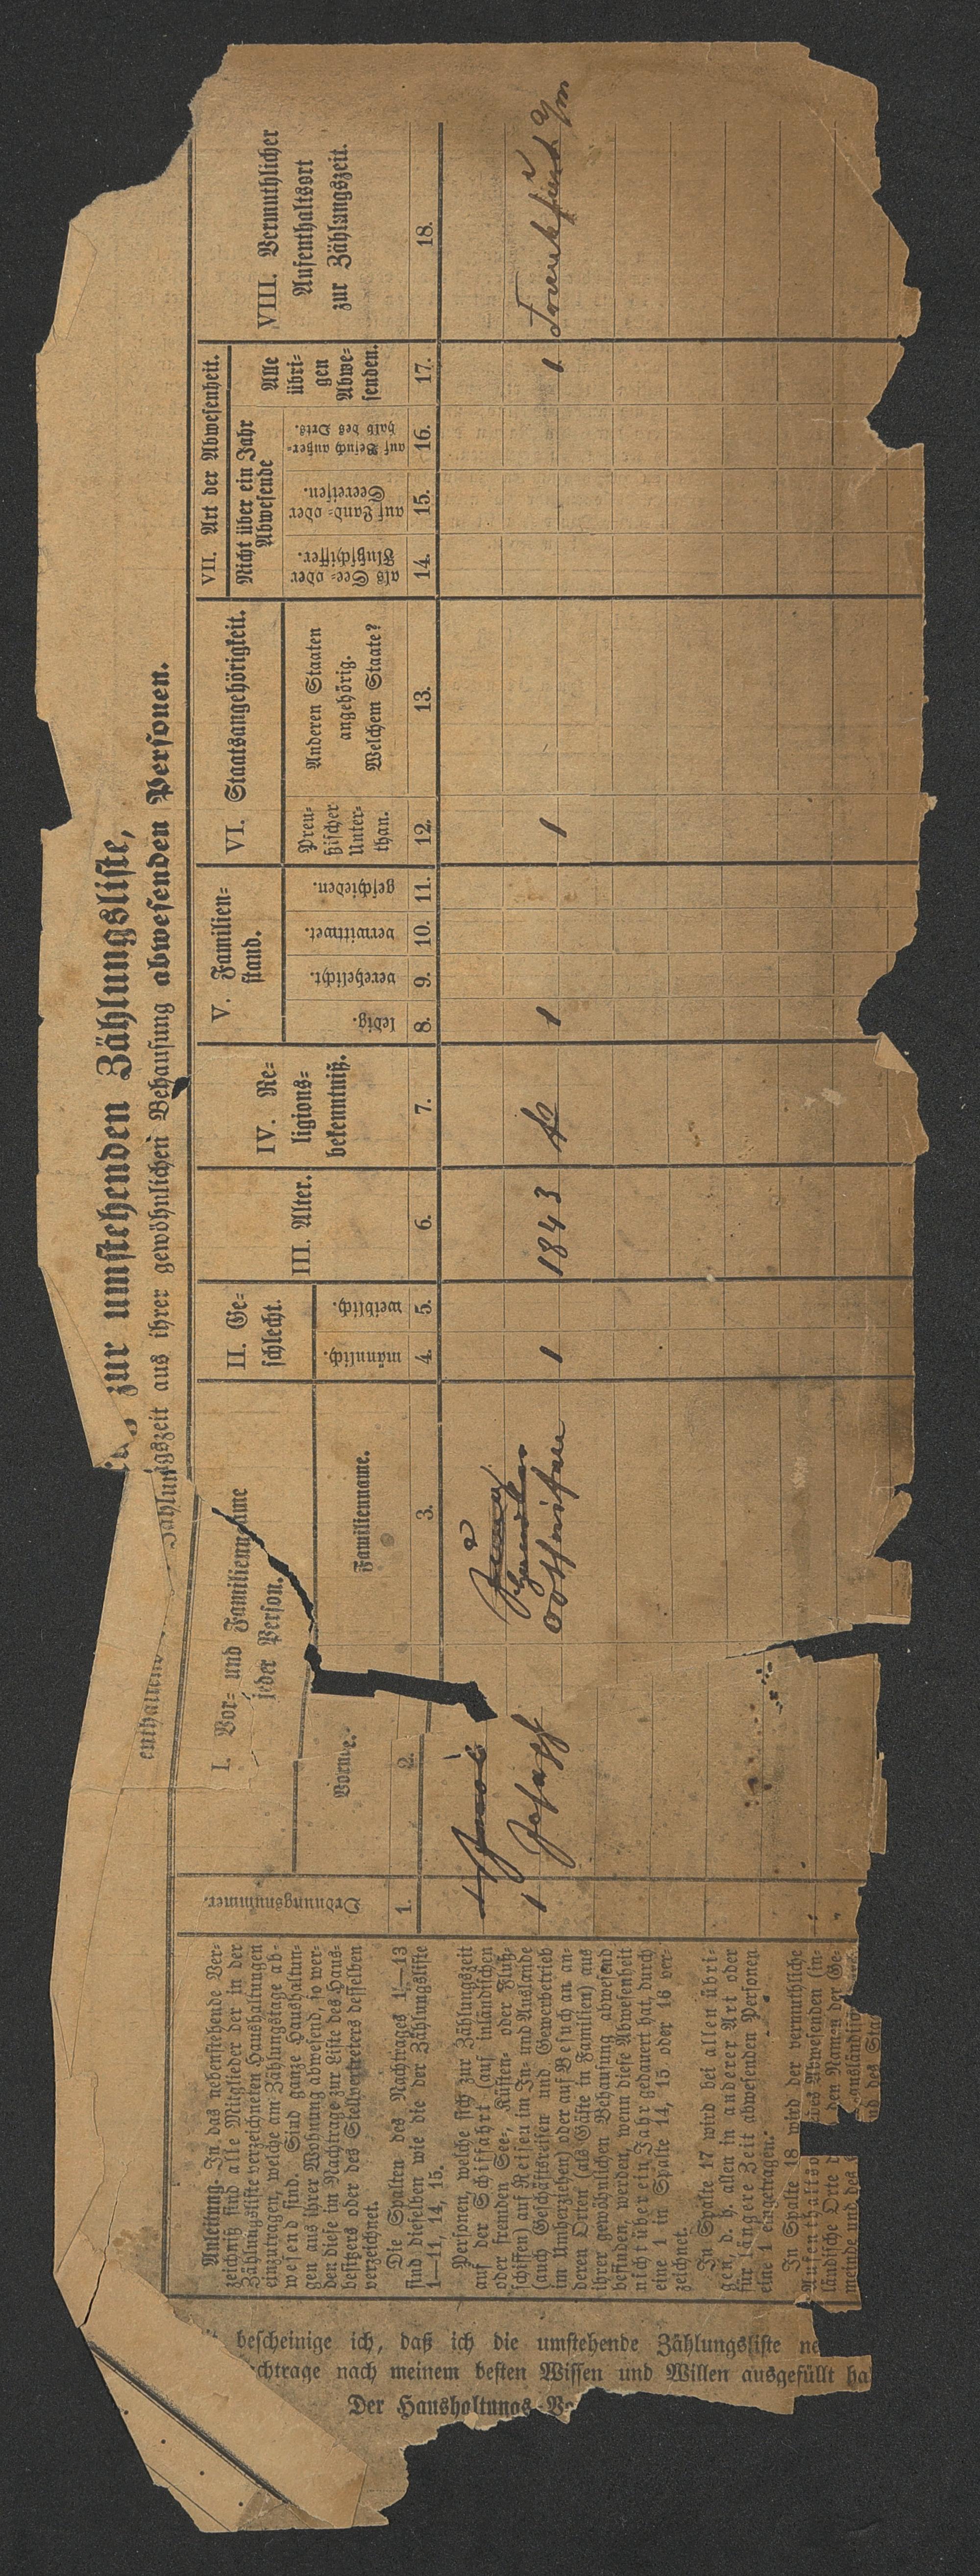 zur umstehenden Zählungsliste,
enthaltend
Zählungszeit aus ihrer gewöhnlichen Behausung abwesenden Personen.
Anleitung. In das nebenstehende Ver-
zeichniß sind alle Mitglieder der in der
Zählungsliste verzeichneten Haushaltungen
einzutragen, welche am Zählungstage ab-
wesend sind. Sind ganze Haushaltun-
gen aus ihrer Wohnung abwesend, so wer-
den diese im Nachtrage zur Liste des Haus-
besitzers oder des Stellvertreters desselben
verzeichnet.
Die Spalten des Nachtrages 1–13
sind dieselben wie die der Zählungsliste
1—11, 14, 15.
Personen, welche sich zur Zählungszeit
auf der Schiffahrt (auf inländischen
oder fremden See-, Küsten- oder Fluß-
schiffen) auf Reisen im In- und Auslande
(auch Geschäftsreisen und Gewerbetrieb
im Umherziehen) oder auf Besuch an an-
deren Orten (als Gäste in Familien) aus
ihrer gewöhnlichen Behausung abwesend
befinden, werden, wenn diese Abwesenheit
nicht über ein Jahr gedauert hat, durch
eine 1 in Spalte 14, 15 oder 16 ver-
zeichnet.
In Spalte 17 wird bei allen übri-
gen, d. h. allen in anderer Art oder
für längere Zeit abwesenden Personen
eine 1 eingetragen.
In Spalte 18 wird der vermuthliche
Aufenthaltso des Abwesenden (in-
ländische Orte den Namen der Ge-
meinde und des
I. Vor- und Familienname
jeder Person.
II. Ge-
schlecht.
III. Alter.
IV. Re-
ligions-
bekenntniß.
V. Familien-
stand.
VI. Staatsangehörigkeit.
VII. Art der Abwesenheit.
Nicht über ein Jahr
Abwesende
VIII. Vermuthlicher
Aufenthaltsort
zur Zählungszeit.
Ordnungsnummer.
Vorname.
Familienname.
männlich.
weiblich.
ledig.
verehelicht.
verwittwet.
geschieden.
Preu-
ßischer
Unter-
than.
Anderen Staaten
angehörig.
Welchem Staate?
als See- oder
Flußschiffer.
auf Land- oder
Seereisen.
auf Besuch außer-
halb des Orts.
Alle
übri-
gen
Abwe-
senden.
1. 2. 3. 4. 5. 6. 7. 8. 9. 10. 11. 12. 13. 14. 15. 16. 17. 18.
1
1 Joseph 1 1843 1 1 1 Frankfurt a/m
bescheinige ich, daß ich die umstehende Zählungsliste ne
chtrage nach meinem besten Wissen und Willen ausgefüllt ha
Der Haushaltungs-Vo